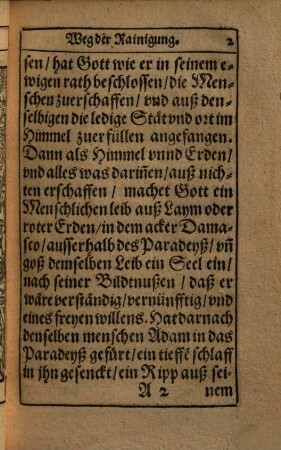 Weg der Rainigung. 2
sen/ hat Gott wie er in seinem e-
wigen rath beschlossen/ die Men-
schen zuerschaffen/ vnd auß den-
selbigen die ledige Stät vnd ort im
Himmel zuerfüllen angefangen.
Dann als Himmel vnnd Erden/
vnd alles was dariñen/ auß nich-
ten erschaffen/ machet Gott ein
Menschlichen leib auß Laym oder
roter Erden/ in dem acker Dama-
sco/ ausserhalb des Paradeyß/ vñ
goß demselben Leib ein Seel ein/
nach seiner Bildtnußen/ daß er
wäre verständig/ vernünfftig/ vnd
eines freyen willens. Hat darnach
denselben menschen Adam in das
Paradeyß gefürt/ ein tieffẽ schlaff
in jhn gesenckt/ ein Ripp auß sei-
A 2 nem